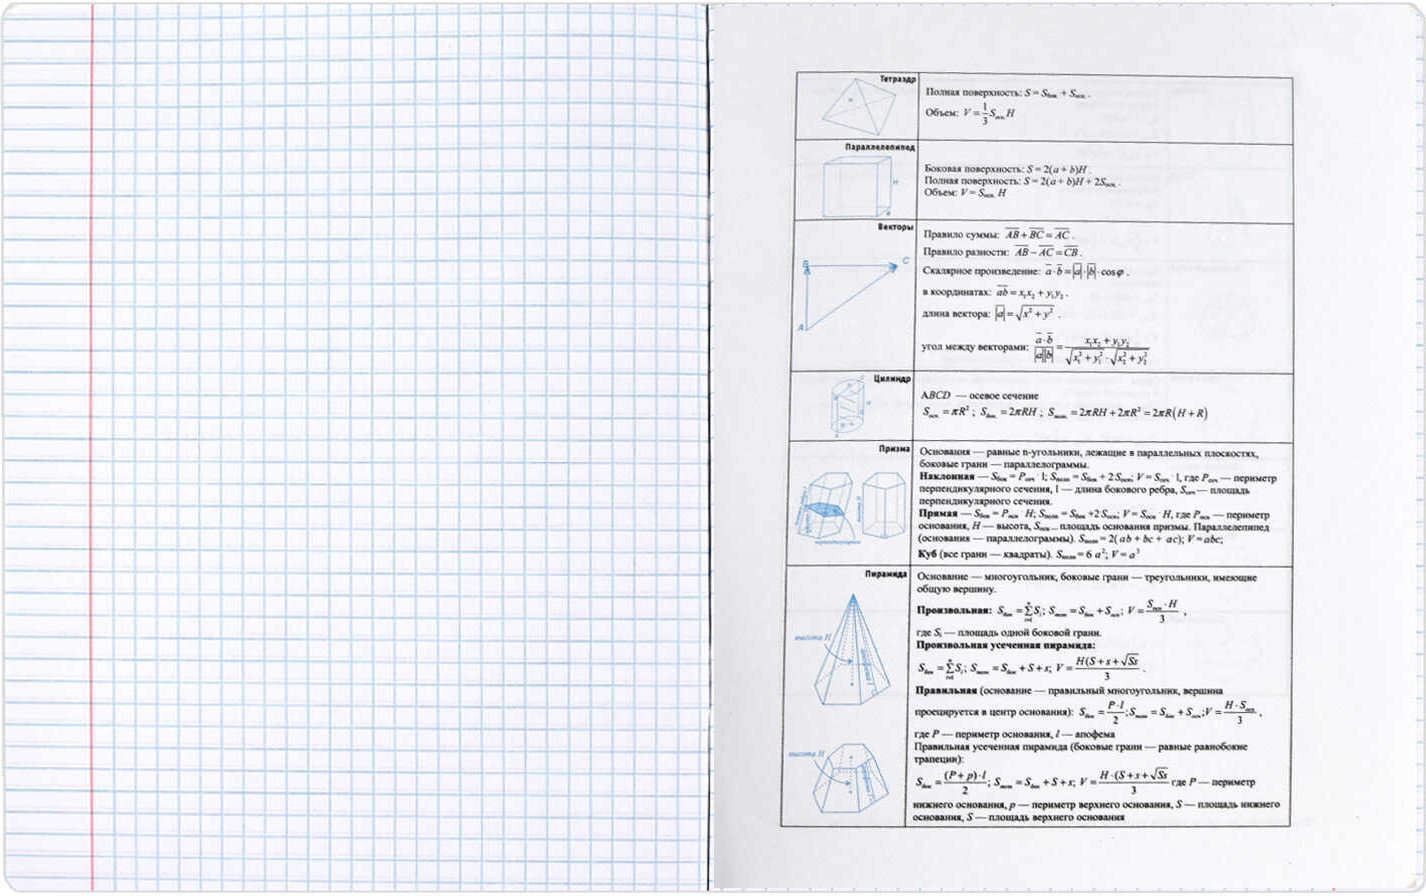 Тетраэдр
Полная поверхность: S = Sбок. + Sосн. .
Объем: V = 1/3 Sосн. H
Параллелепипед
H
Боковая поверхность: S = 2(a + b)H .
Полная поверхность: S = 2(a + b)H + 2Sосн. .
Объем: V = Sосн. H
Векторы
B
C
A
Правило суммы: AB + BC = AC .
Правило разности: AB − AC = CB .
Скалярное произведение: a · b = |a| · |b| · cos φ .
в координатах: ab = x₁x₂ + y₁y₂ .
длина вектора: |a| = √(x² + y²) .
угол между векторами: a · b / |a||b| = x₁x₂ + y₁y₂ / √(x₁² + y₁²) · √(x₂² + y₂²)
Цилиндр
ABCD — осевое сечение
Sосн. = πR² ; Sбок. = 2πRH ; Sполн. = 2πRH + 2πR² = 2πR(H + R)
Призма
Основания — равные n-угольники, лежащие в параллельных плоскостях,
боковые грани — параллелограммы.
Наклонная — Sбок = Pсеч · l; Sполн = Sбок + 2Sосн; V = Sсеч · l, где Pсеч — периметр
перпендикулярного сечения, l — длина бокового ребра, Sсеч — площадь
перпендикулярного сечения.
Прямая — Sбок = Pосн · H; Sполн = Sбок +2Sосн; V = Sосн · H, где Pосн — периметр
основания, H — высота, Sосн — площадь основания призмы. Параллелепипед
(основания — параллелограммы). Sполн = 2( ab + bc + ac); V = abc;
Куб (все грани — квадраты). Sполн = 6 a²; V = a³
Пирамида
высота H
Основание — многоугольник, боковые грани — треугольники, имеющие
общую вершину.
Произвольная: Sбок = ∑ⁿᵢ₌₁ Sᵢ; Sполн = Sбок + Sосн; V = Sосн · H / 3 ,
где Sᵢ — площадь одной боковой грани.
Произвольная усеченная пирамида:
Sбок = ∑ⁿᵢ₌₁ Sᵢ; Sполн = Sбок + S + s; V = H(S + s + √Ss / 3 .
Правильная (основание — правильный многоугольник, вершина
проецируется в центр основания): Sбок = P · l / 2 ; Sполн = Sбок + Sосн ; V = H · Sосн / 3 ,
где P — периметр основания, l — апофема
Правильная усеченная пирамида (боковые грани — равные равнобокие
трапеции):
высота H
Sбок = (P + p) · l / 2 ; Sполн = Sбок + S + s; V = H · (S + s + √Ss / 3 где P — периметр
нижнего основания, p — периметр верхнего основания, S — площадь нижнего
основания, S — площадь верхнего основания